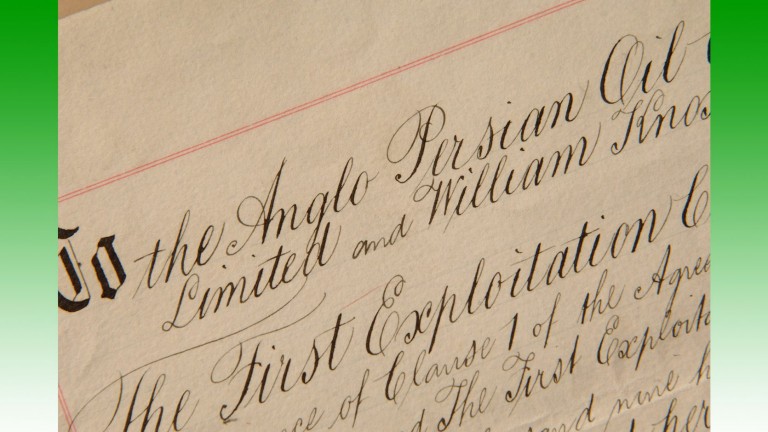 To the Anglo Persian Oil
Limited and William Knox
The First Exploitation C
ce of Clause 1 of the Agree
d The First Exploita
and nine h
wher